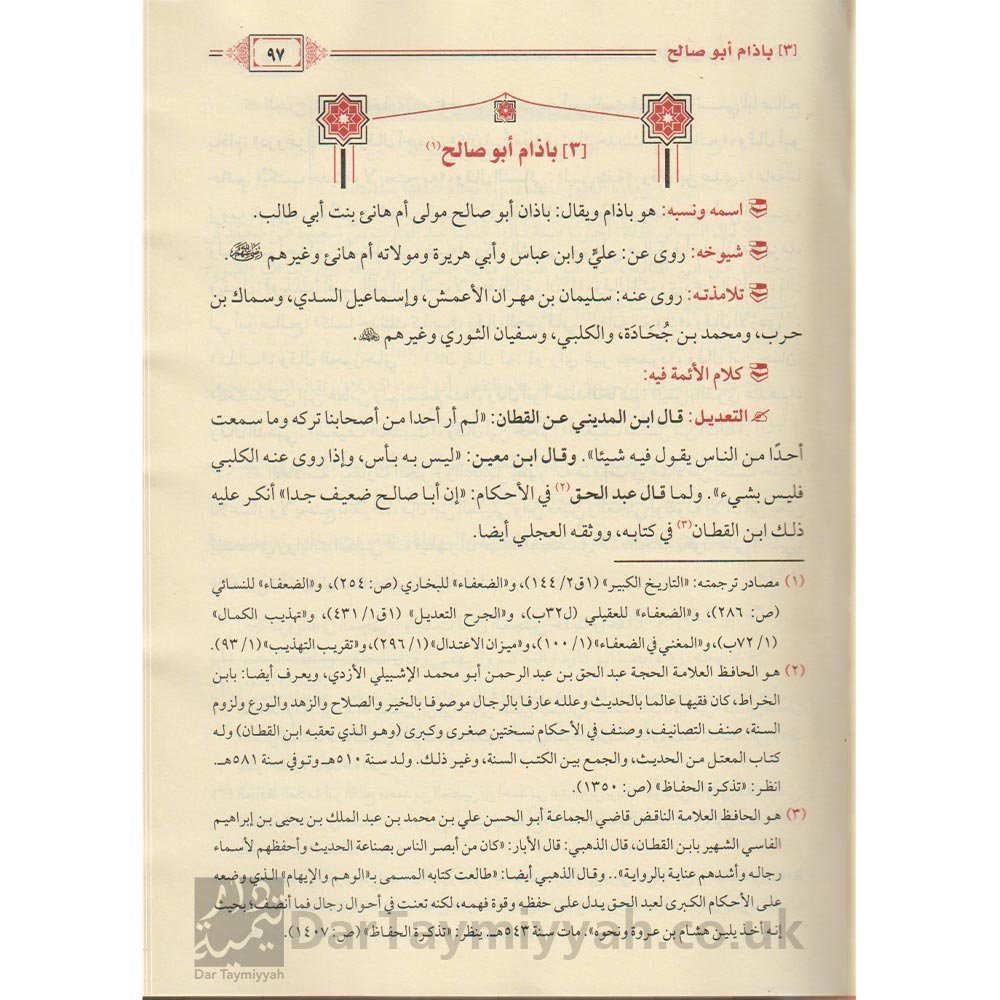 [٣] باذام أبو صالح
٩٧
[٣] باذام أبو صالح(١)
اسمه ونسبه: هو باذام ويقال: باذان أبو صالح مولى أم هانئ بنت أبي طالب.
شيوخه: روى عن: عليٍّ وابن عباس وأبي هريرة ومولاته أم هانئ وغيرهم.
تلامذته: روى عنه: سليمان بن مهران الأعمش، وإسماعيل السدي، وسماك بن
حرب، ومحمد بن جُحَادَة، والكلبي، وسفيان الثوري وغيرهم.
كلام الأئمة فيه:
التعديل: قال ابن المديني عن القطان: «لم أر أحدا من أصحابنا تركه وما سمعت
أحدًا من الناس يقول فيه شيئا». وقال ابن معين: «ليس به بأس، وإذا روى عنه الكلبي
فليس بشيء». ولما قال عبد الحق(٢) في الأحكام: «إن أبا صالح ضعيف جدا» أنكر عليه
ذلك ابن القطان(٣) في كتابه، ووثقه العجلي أيضا.
(١) مصادر ترجمته: «التاريخ الكبير» (١ق٢/ ١٤٤)، و«الضعفاء» للبخاري (ص: ٢٥٤)، و«الضعفاء» للنسائي
(ص: ٢٨٦)، و«الضعفاء» للعقيلي (ل٣٢ب)، و«الجرح التعديل» (١ق١/ ٤٣١)، و«تهذيب الكمال»
(١/ ٧٢ب)، و«المغني في الضعفاء» (١/ ١٠٠)، و«ميزان الاعتدال» (١/ ٢٩٦)، و«تقريب التهذيب» (١/ ٩٣).
(٢) هو الحافظ العلامة الحجة عبد الحق بن عبد الرحمن أبو محمد الإشبيلي الأزدي، ويعرف أيضا: بابن
الخراط، كان فقيها عالما بالحديث وعلله عارفا بالرجال موصوفا بالخير والصلاح والزهد والورع ولزوم
السنة، صنف التصانيف، وصنف في الأحكام نسختين صغرى وكبرى (وهو الذي تعقبه ابن القطان) وله
كتاب المعتل من الحديث، والجمع بين الكتب السنة، وغير ذلك. ولد سنة ٥١٠هـ وتوفي سنة ٥٨١هـ.
انظر: «تذكرة الحفاظ» (ص: ١٣٥٠).
(٣) هو الحافظ العلامة الناقض قاضي الجماعة أبو الحسن علي بن محمد بن عبد الملك بن يحيى بن إبراهيم
الفاسي الشهير بابن القطان، قال الذهبي: قال الأبار: «كان من أبصر الناس بصناعة الحديث وأحفظهم لأسماء
رجاله وأشدهم عناية بالرواية».. وقال الذهبي أيضا: «طالعت كتابه المسمى بـ«الوهم والإيهام» الذي وضعه
على الأحكام الكبرى لعبد الحق يدل على حفظه وقوة فهمه، لكنه تعنت في أحوال رجال فما أنصف؛ بحيث
إنه أخذ يلين هشام بن عروة ونحوه». مات سنة ٥٤٣هـ. ينظر: «تذكرة الحفاظ» (ص: ١٤٠٧).
DarTaymiyyah.co.uk
Dar Taymiyyah